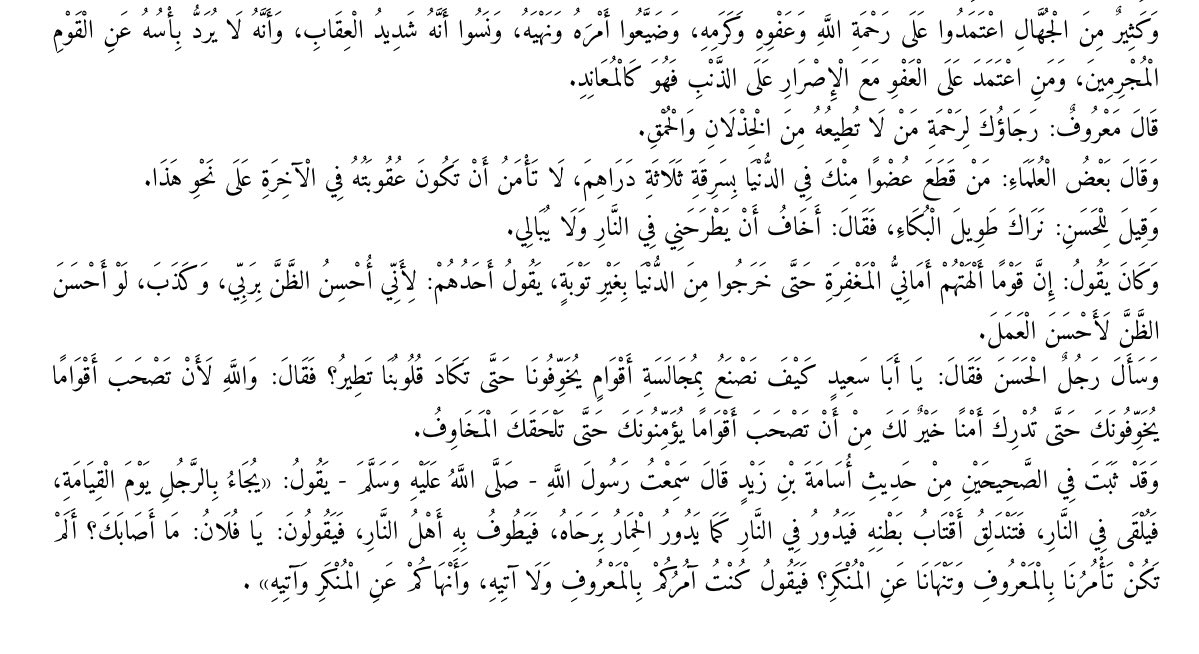 وَكَثِيرٌ مِنَ الْجُهَّالِ اعْتَمَدُوا عَلَى رَحْمَةِ اللَّهِ وَعَفْوِهِ وَكَرَمِهِ، وَضَيَّعُوا أَمْرَهُ وَنَهْيَهُ، وَنَسُوا أَنَّهُ شَدِيدُ الْعِقَابِ، وَأَنَّهُ لَا يُرَدُّ بِأْسُهُ عَنِ الْقَوْمِ
الْمُجْرِمِينَ، وَمَنِ اعْتَمَدَ عَلَى الْعَفْوِ مَعَ الْإِصْرَارِ عَلَى الذَّنْبِ فَهُوَ كَالْمُعَانِدِ.
قَالَ مَعْرُوفٌ: رَجَاؤُكَ لِرَحْمَةِ مَنْ لَا تُطِيعُهُ مِنَ الْخِذْلَانِ وَالْحُمْقِ.
وَقَالَ بَعْضُ الْعُلَمَاءِ: مَنْ قَطَعَ عُضْوًا مِنْكَ فِي الدُّنْيَا بِسَرِقَةِ ثَلَاثَةِ دَرَاهِمَ، لَا تَأْمَنُ أَنْ تَكُونَ عُقُوبَتُهُ فِي الْآخِرَةِ عَلَى نَحْوِ هَذَا.
وَقِيلَ لِلْحَسَنِ: نَرَاكَ طَوِيلَ الْبُكَاءِ، فَقَالَ: أَخَافُ أَنْ يَطْرَحَنِي فِي النَّارِ وَلَا يُبَالِي.
وَكَانَ يَقُولُ: إِنَّ قَوْمًا أَلْهَتْهُمْ أَمَانِيُّ الْمَغْفِرَةِ حَتَّى خَرَجُوا مِنَ الدُّنْيَا بِغَيْرِ تَوْبَةٍ، يَقُولُ أَحَدُهُمْ: لِأَنِّي أُحْسِنُ الظَّنَّ بِرَبِّي، وَكَذَبَ، لَوْ أَحْسَنَ
الظَّنَّ لَأَحْسَنَ الْعَمَلَ.
وَسَأَلَ رَجُلٌ الْحَسَنَ فَقَالَ: يَا أَبَا سَعِيدٍ كَيْفَ نَصْنَعُ بِمُجَالَسَةِ أَقْوَامٍ يُخَوِّفُونَا حَتَّى تَكَادَ قُلُوبُنَا تَطِيرُ؟ فَقَالَ: وَاللَّهِ لَأَنْ تَصْحَبَ أَقْوَامًا
يُخَوِّفُونَكَ حَتَّى تُدْرِكَ أَمْنًا خَيْرٌ لَكَ مِنْ أَنْ تَصْحَبَ أَقْوَامًا يُؤَمِّنُونَكَ حَتَّى تَلْحَقَكَ الْمَخَاوِفُ.
وَقَدْ ثَبَتَ فِي الصَّحِيحَيْنِ مِنْ حَدِيثِ أُسَامَةَ بْنِ زَيْدٍ قَالَ سَمِعْتُ رَسُولَ اللَّهِ - صَلَّى اللَّهُ عَلَيْهِ وَسَلَّمَ - يَقُولُ: «يُجَاءُ بِالرَّجُلِ يَوْمَ الْقِيَامَةِ،
فَيُلْقَى فِي النَّارِ، فَتَنْدَلِقُ أَقْتَابُ بَطْنِهِ فَيَدُورُ فِي النَّارِ كَمَا يَدُورُ الْحِمَارُ بِرَحَاهُ، فَيَطُوفُ بِهِ أَهْلُ النَّارِ، فَيَقُولُونَ: يَا فُلَانُ: مَا أَصَابَكَ؟ أَلَمْ
تَكُنْ تَأْمُرُنَا بِالْمَعْرُوفِ وَتَنْهَانَا عَنِ الْمُنْكَرِ؟ فَيَقُولُ كُنْتُ آمُرُكُمْ بِالْمَعْرُوفِ وَلَا آتِيهِ، وَأَنْهَاكُمْ عَنِ الْمُنْكَرِ وَآتِيهِ» .